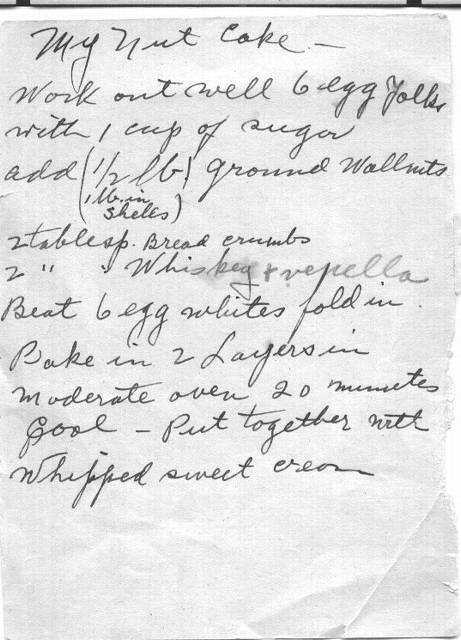 My Nut Cake —
Work out well 6 egg Yolks
with 1 cup of sugar
add (1/2 lb) ground Wallnuts
(1 lb. in
Shells)
2 tablesp. Bread crumbs
2 " " Whiskey + venella
Beat 6 egg whites fold in.
Bake in 2 Layers in
moderate oven 20 minutes
Cool — Put together with
Whipped sweet cream